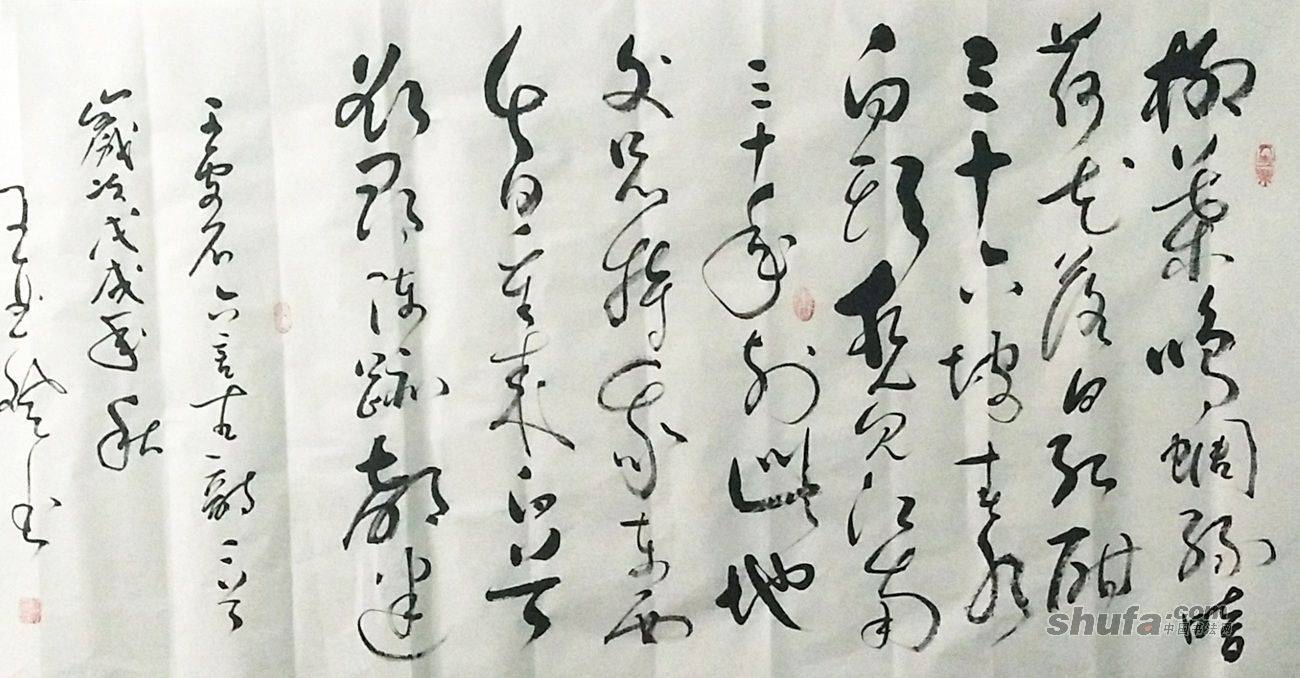 柳葉鳴蜩綠暗
荷花落日紅酣
三十六坡春水
白頭想見江南
三十年前此地
父兄持我東西
今日重來白首
欲尋陳跡都迷
王安石六言古韻二首
歲次戊戌年秋
王书
shufa.com
中国书法网